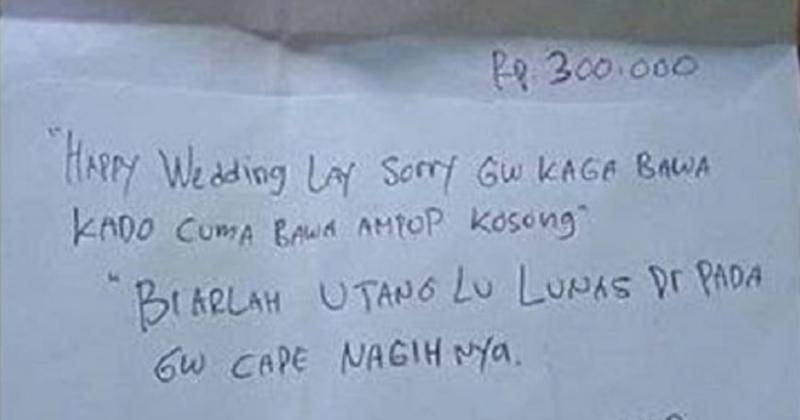 Rp. 300.000
"HAPPY Wedding LAY Sorry GW KAGA BAWA
KADO CUMA BAWA AMPOP Kosong"
"BIARLAH UTANG LU LUNAS DI PADA
GW CAPE NAGIH Nya.